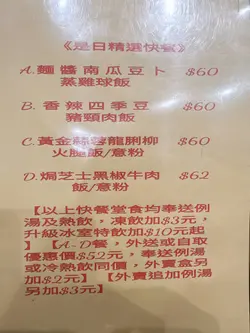 《是日精選快餐》
A.麵醬南瓜豆卜 $60
蒸雞球飯
B.香辣四季豆 $60
豬頸肉飯
C.黃金蒜蓉龍脷柳 $60
火腿飯/意粉
D.焗芝士黑椒牛肉 $62
飯/意粉
【以上快餐堂食均奉送例
湯及熱飲，凍飲加$3元，
升級冰室特飲加$10元起
】【A-D餐，外送或自取
優惠價$52元，奉送例湯
或冷熱飲同價，外賣盒另
加$2元】【外賣追加例湯
另加$3元】